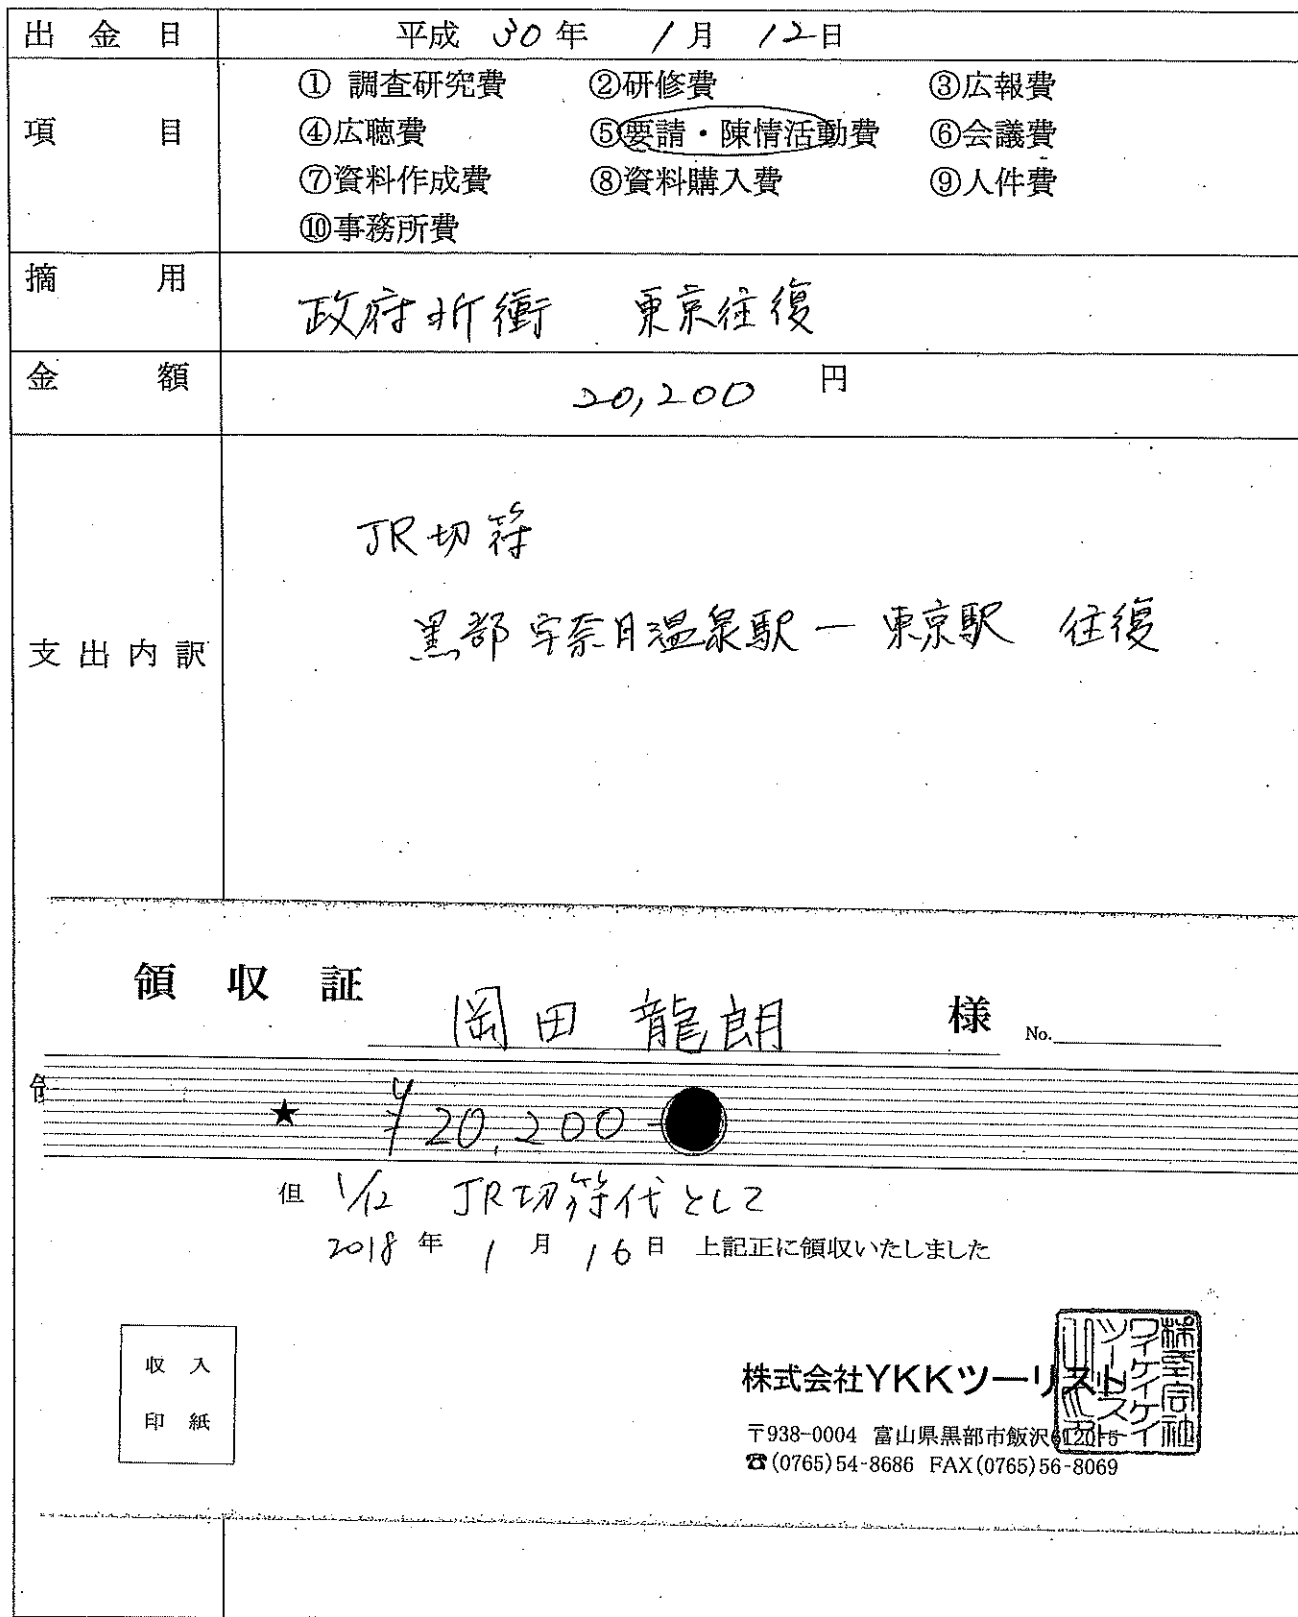 出金日 平成 30年 1月 12日
項目
① 調査研究費 ②研修費 ③広報費
④広聴費 ⑤要請・陳情活動費 ⑥会議費
⑦資料作成費 ⑧資料購入費 ⑨人件費
⑩事務所費
摘用 政府折衝 東京往復
金額 20,200 円
支出内訳
JR切符
黒部宇奈月温泉駅ー東京駅 往復
領収証 岡田 龍朗 様 No.
★ ¥20,200-
但 1/12 JR切符代として
2018年 1月 16日 上記正に領収いたしました
収入
印紙
株式会社YKKツーリスト
〒938-0004 富山県黒部市飯沢
☎(0765)54-8686 FAX(0765)56-8069